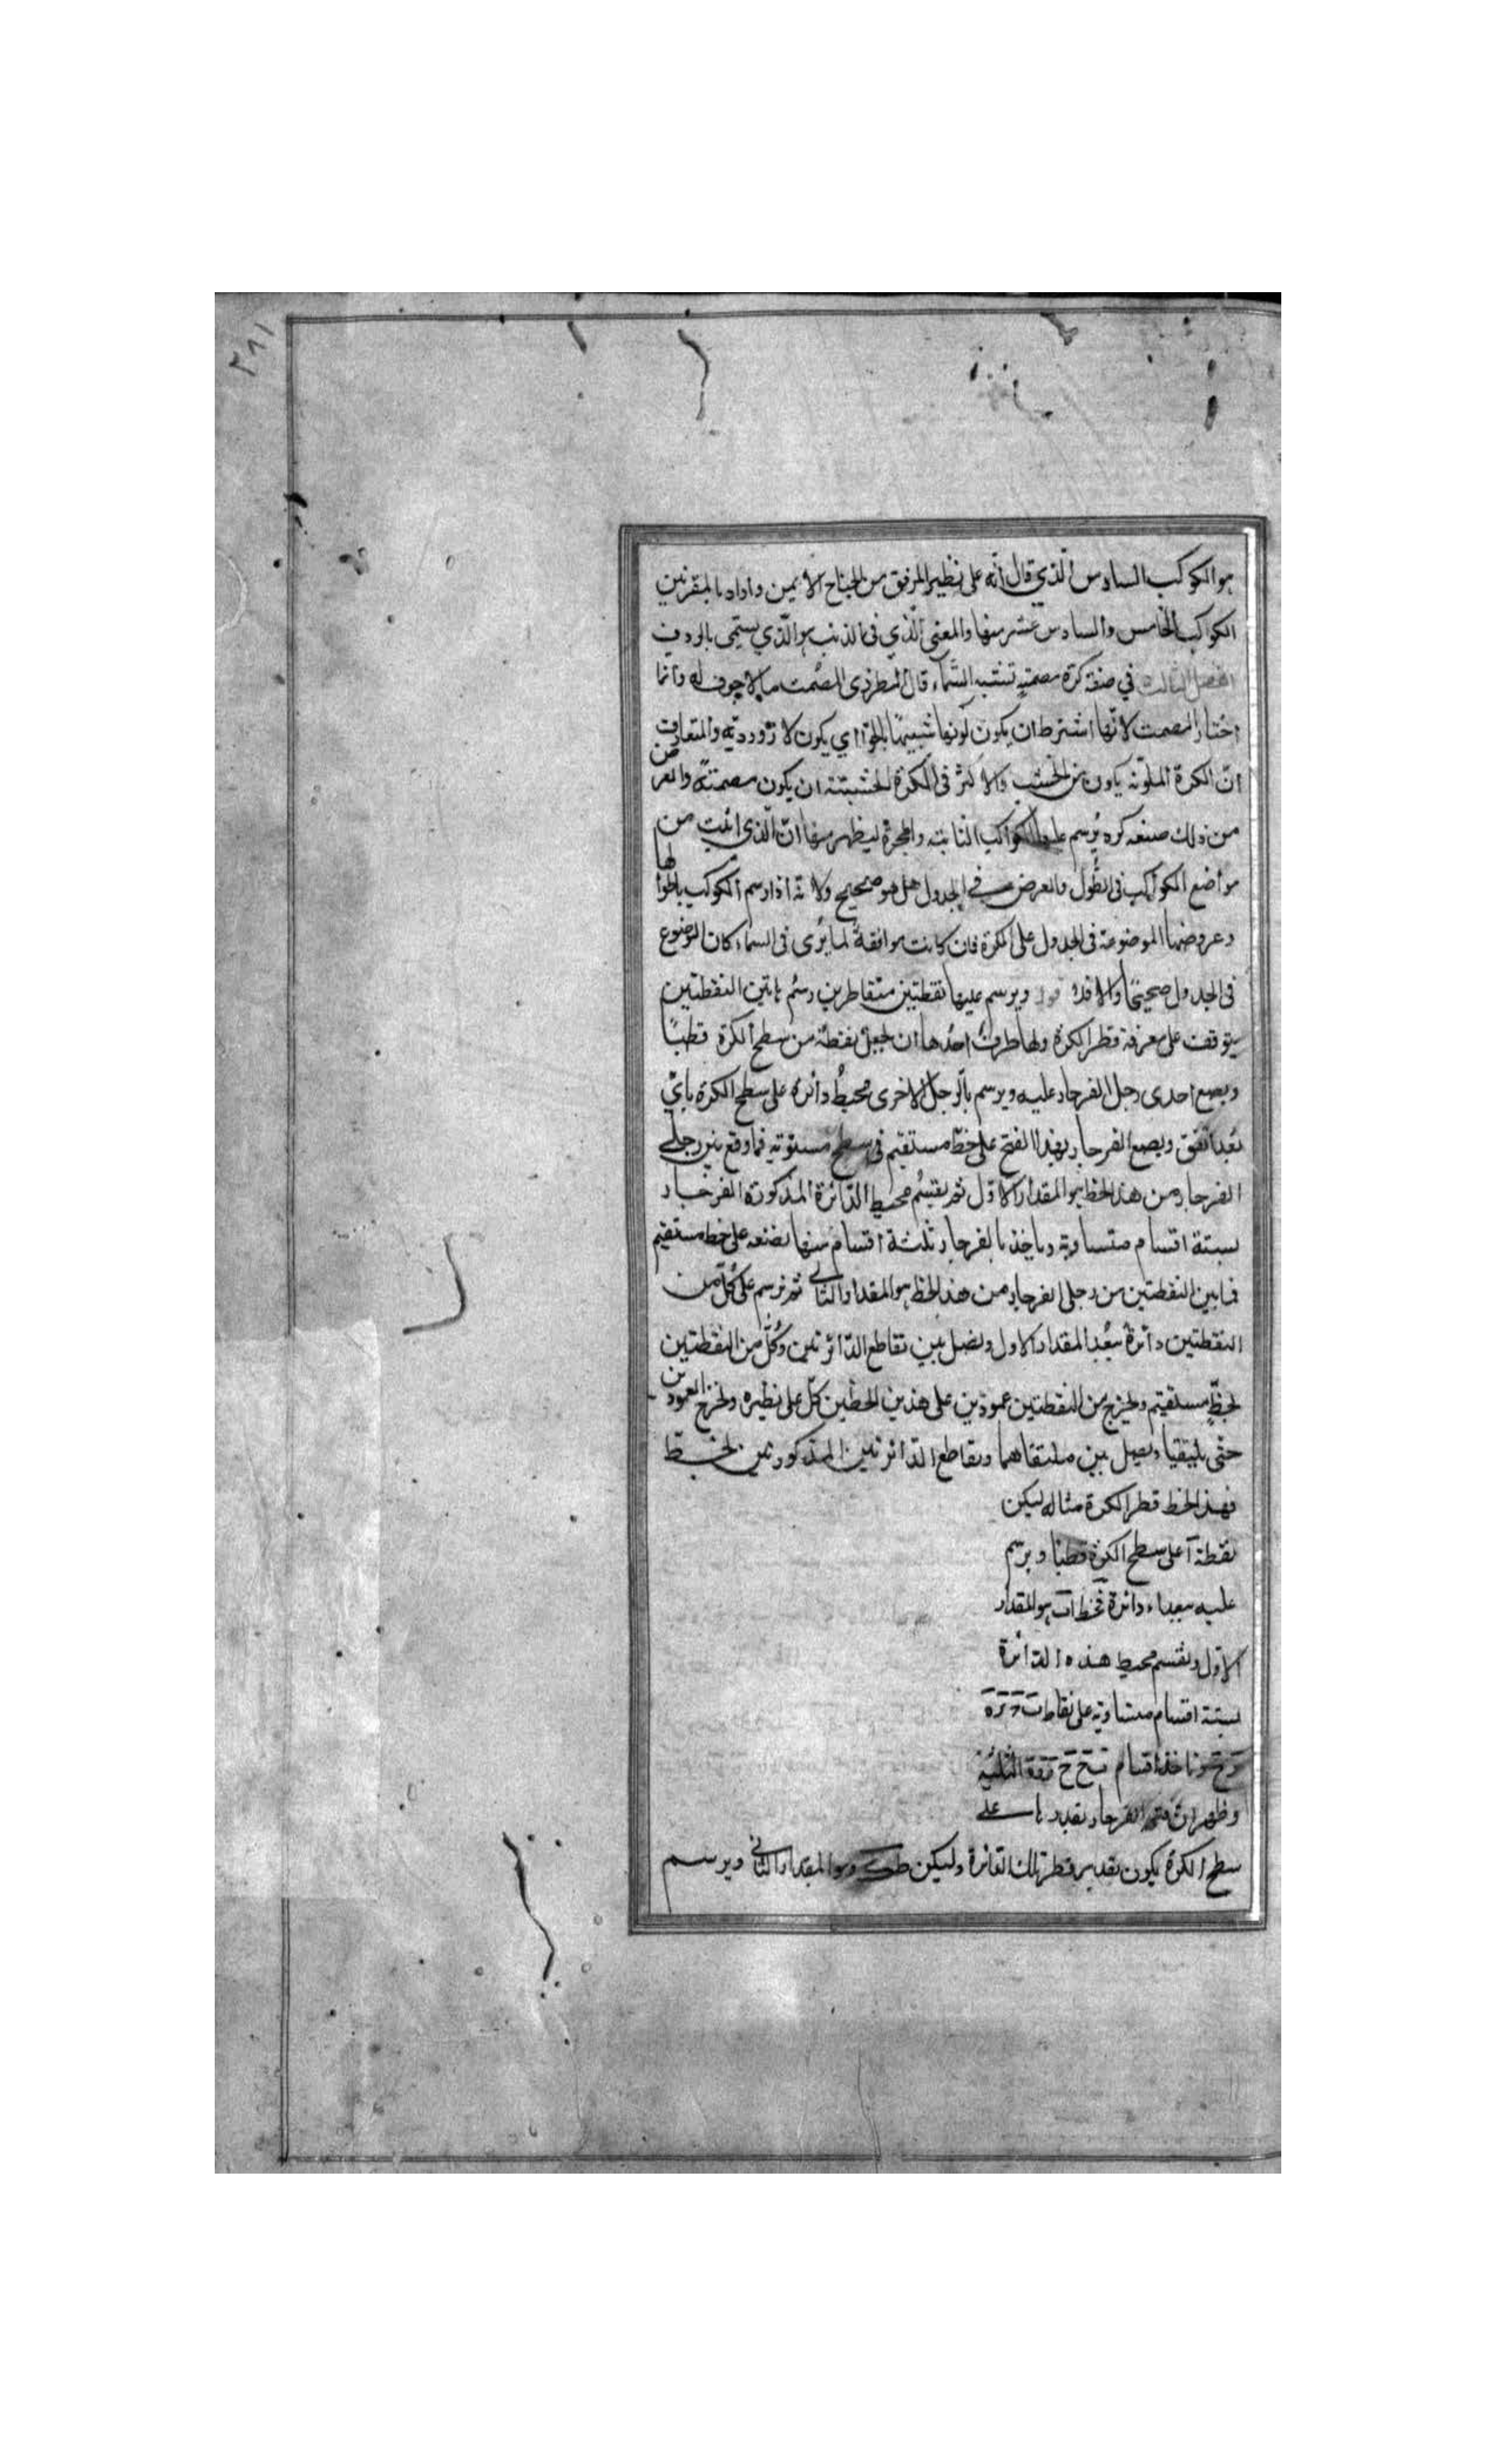 ٢٨١
هو الكوكب السادس الذي قال انه على نظير المرفق من الجناح الايمن واراد بالمقرنين
الكواكب الخامس والسادس عشر منها والمعنى الذي في الذنب هو الذي يسمى بالردف
الفصل الثالث في صنعة كرة مصمتة تشبه السماء قال المطرزى المصمت ما لا جوف له وانما
اختار المصمت لانها اشترط ان يكون لونها شبيها بالجو اي يكون لازوردية والمتعارف
ان الكرة الملونة يكون من الخشب والاكثر في الكرة الخشبية ان يكون مصمتة والغرض
من ذلك صنعه كره يرسم عليها الكواكب الثابتة والمجرة ليظهر منها ان الذي اثبت من
مواضع الكواكب في الطول والعرض في الجدول هل هو صحيح ولا نه اذا رسم الكوكب باطوالها
وعروضها الموضوعة في الجدول على الكرة فان كانت موافقة لما يرى في السماء كان الموضوع
في الجدول صحيحا والا فلا قوله ويرسم عليها نقطتين متقاطرين رسم هاتين النقطتين
يتوقف على معرفة قطر الكرة ولها طرق احدها ان نجعل نقطة من سطح الكرة قطبا
ويضع احدى رجل الفرجار عليه ويرسم بالرجل الاخرى محيط دائرة على سطح الكرة باي
بعد اتفق ويضع الفرجار بهذا الفتح على خط مستقيم في سطح مستوية فما وقع بين رجلي
الفرجار من هذا الخط هو المقدار الاول ثم يقسم محيط الدائرة المذكورة الفرجار
بستة اقسام متساوية وياخذ بالفرجار ثلثة اقسام منها يضعه على خط مستقيم
فما بين النقطتين من رجلي الفرجار من هذا الخط هو المقدار الثاني ثم نرسم على كل من
النقطتين دائرة ببعد المقدار الاول ونصل بين تقاطع الدائرتين وكل من النقطتين
بخط مستقيم ونخرج من النقطتين عمودين على هذين الخطين كل على نظيره ونخرج العمودين
حتى يلتقيا ونصل بين ملتقاهما وتقاطع الدائرتين المذكورتين بخط
فهذا الخط قطر الكرة مثاله ليكن
نقطة آ على سطح الكرة قطبا ويرسم
عليه ببعد اء دائرة فخط اب هو المقدار
الاول ونقسم محيط هذه الدائرة
بستة اقسام متساوية على نقاط
وناخذ اقسام الثلثة
وظهر ان فتح الفرجار بقدر على
سطح الكرة يكون بقدر قطر تلك الدائرة وليكن طك وهو المقدار الثاني ويرسم